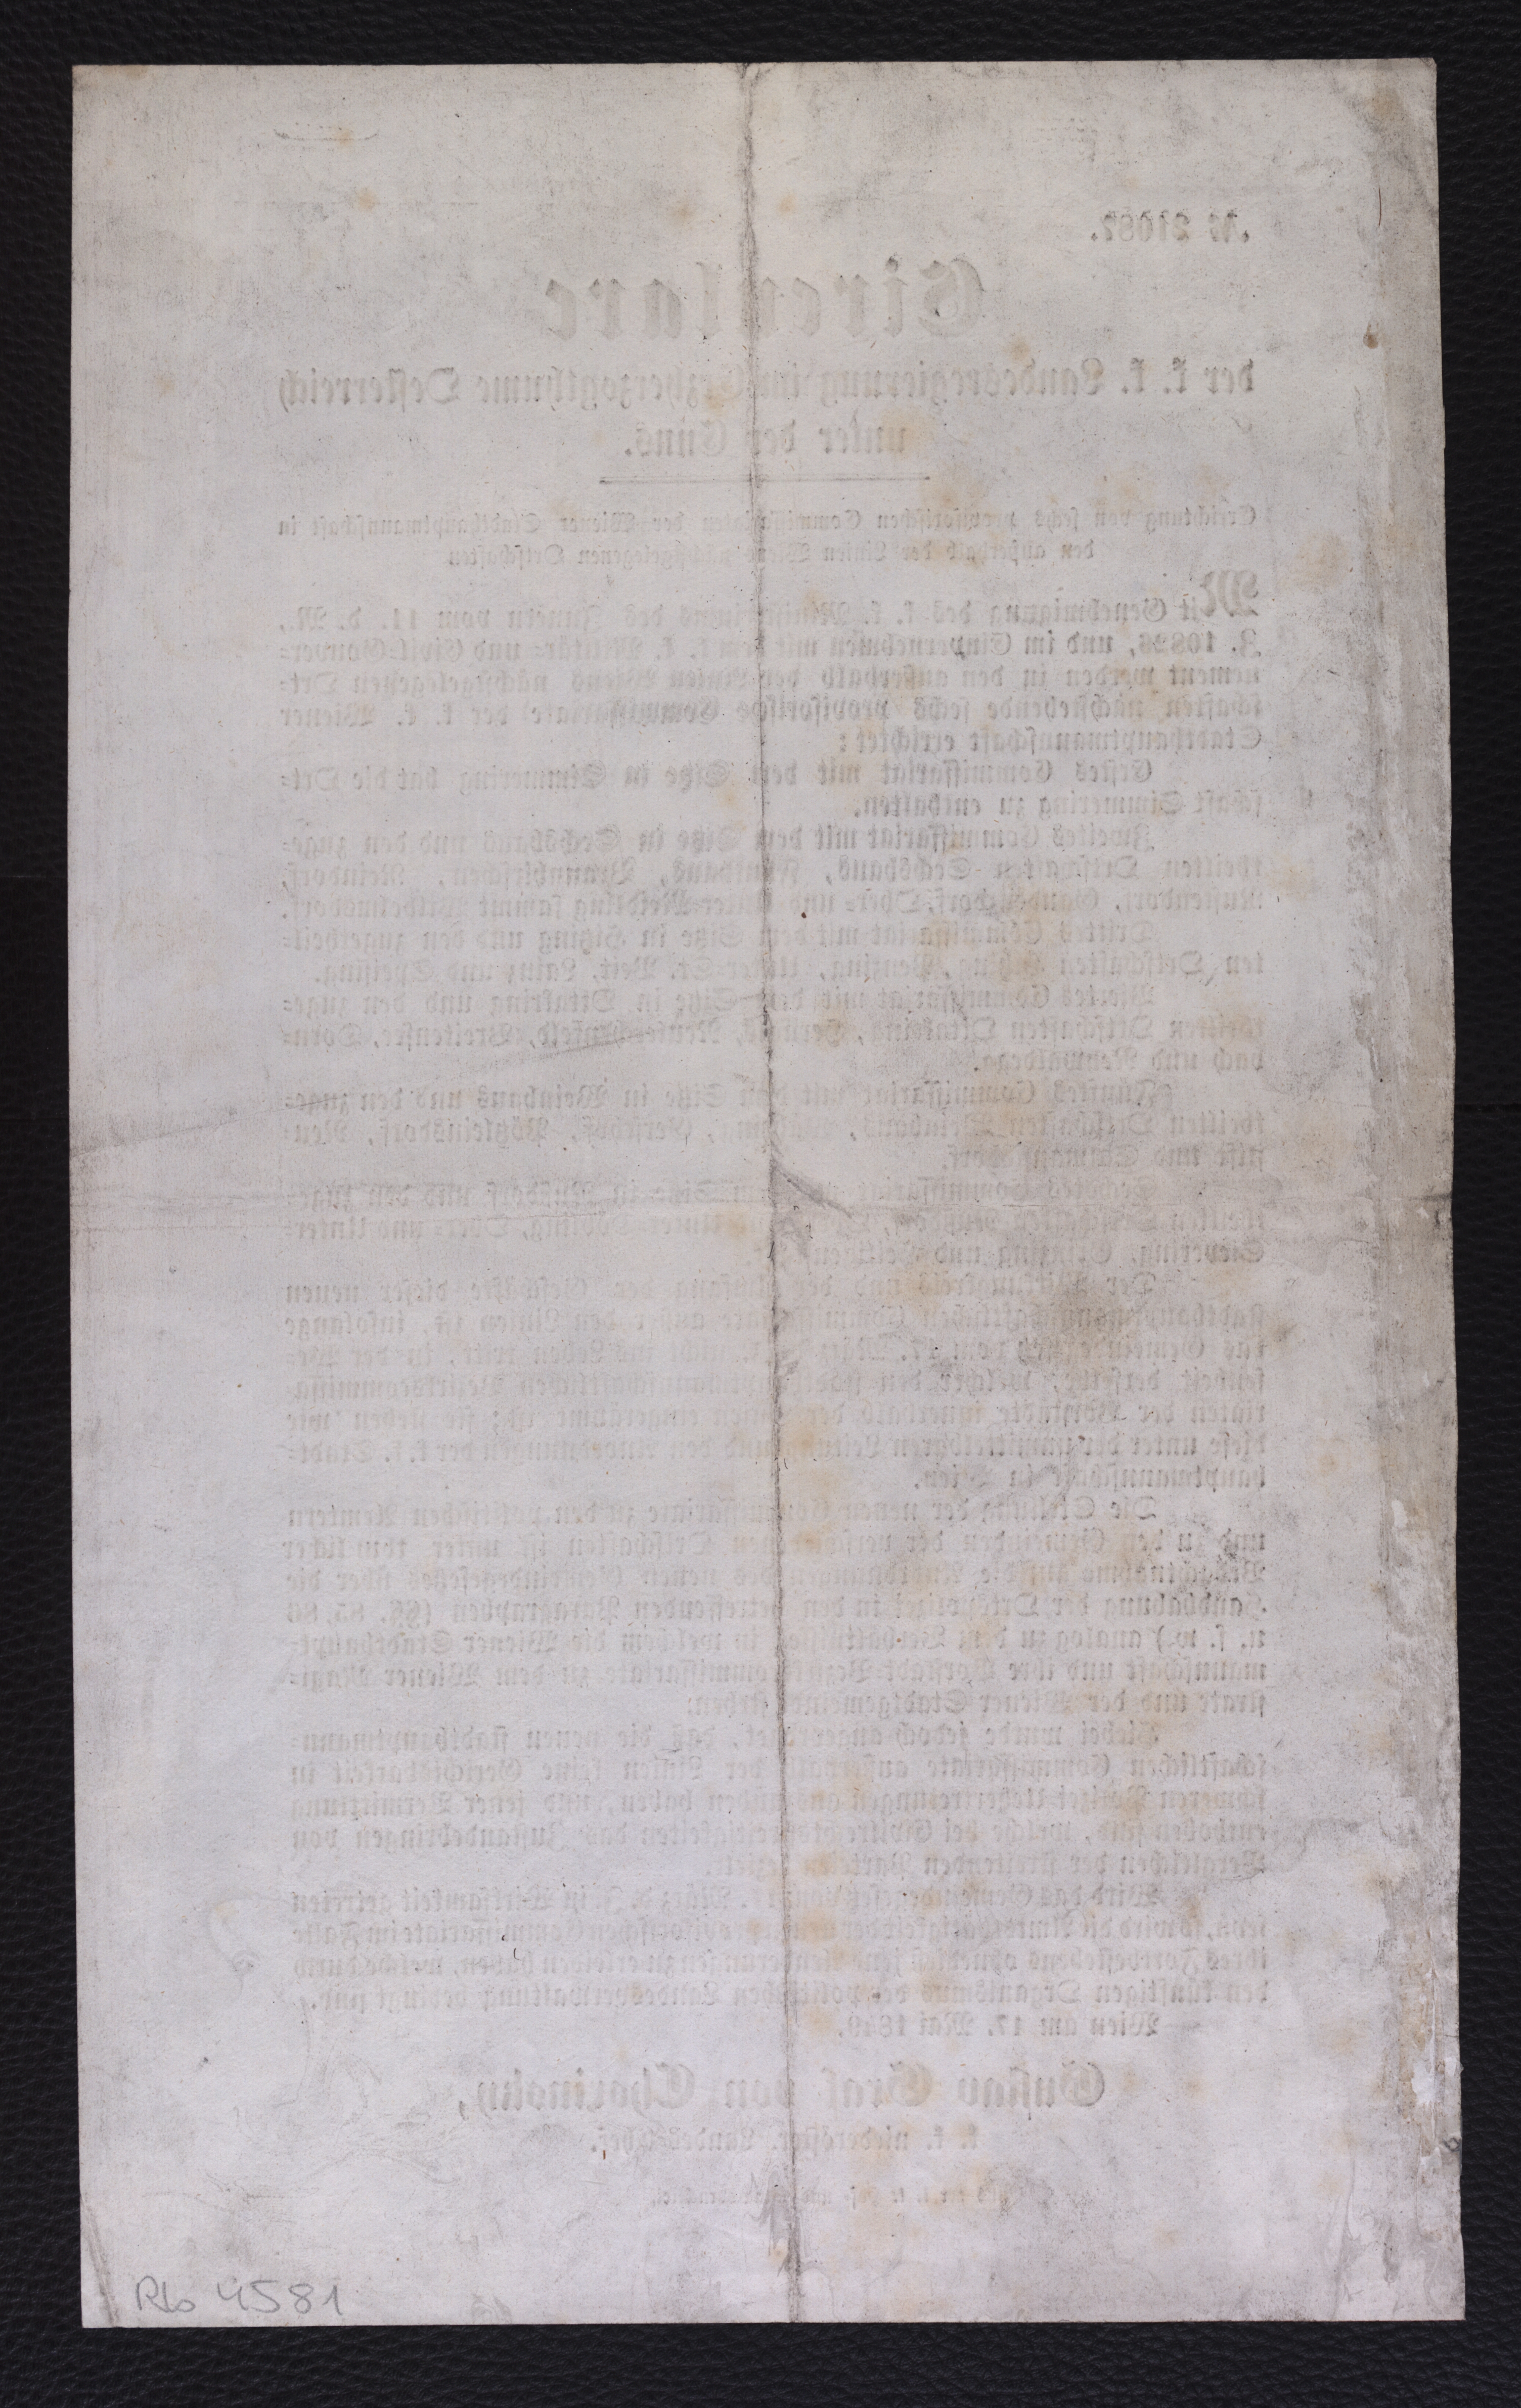 № 21087.
Circulare
der k. k. Landesregierung im Erzherzogthume Oesterreich
unter der Enns.
Errichtung von sechs provisorischen Commissariaten der Wiener Stadthauptmannschaft in
den außerhalb der Linien Wiens nächstgelegenen Ortschaften
Mit Genehmigung des k. k. Ministeriums des Innern vom 11. d. M.,
Z. 10826, und im Einvernehmen mit dem k. k. Militär- und Civil-Gouver-
nement werden in den außerhalb der Linien Wiens nächstgelegenen Ort-
schaften nachstehende sechs provisorische Commissariate der k. k. Wiener
Stadthauptmannschaft errichtet:
Erstes Commissariat mit dem Sitze in Simmering hat die Ort-
schaft Simmering zu enthalten.
Zweites Commissariat mit dem Sitze in Sechshaus und den zuge-
theilten Ortschaften Sechshaus, Fünfhaus, Braunhirschen, Reindorf,
Rustendorf, Gaudenzdorf, Ober- und Unter-Meidling sammt Wilhelmsdorf.
Drittes Commissariat mit dem Sitze in Hitzing und den zugetheil-
ten Ortschaften Hitzing, Penzing, Unter-St. Veit, Lainz und Speising.
Viertes Commissariat mit dem Sitze in Ottakring und den zuge-
theilten Ortschaften Ottakring, Hernals, Neulerchenfeld, Breitensee, Dorn-
bach und Neuwaldegg.
Fünftes Commissariat mit dem Sitze in Weinhaus und den zuge-
theilten Ortschaften Weinhaus, Währing, Gersthof, Pötzleinsdorf, Neu-
stift und Salmannsdorf.
Sechstes Commissariat mit dem Sitze in Nußdorf und den zuge-
theilten Ortschaften Nußdorf, Ober- und Unter-Döbling, Ober- und Unter-
Sievering, Grinzing und Heiligenstadt.
Der Wirkungskreis und der Umfang der Geschäfte dieser neuen
stadthauptmannschaftlichen Commissariate außer den Linien ist, insolange
das Gemeindegesetz vom 17. März d. J. nicht ins Leben tritt, in der We-
senheit derselbe, welcher den stadthauptmannschaftlichen Bezirkscommissa-
riaten der Vorstädte innerhalb der Linien eingeräumt ist; sie stehen wie
diese unter der unmittelbaren Leitung und den Anordnungen der k. k. Stadt-
hauptmannschaft in Wien.
Die Stellung der neuen Commissariate zu den politischen Aemtern
und zu den Gemeinden der verschiedenen Ortschaften ist unter thunlicher
Bedachtnahme auf die Anordnungen des neuen Gemeindegesetzes über die
Handhabung der Ortspolizei in den betreffenden Paragraphen (§§. 85, 86
u. s. w.) analog zu dem Verhältnisse, in welchem die Wiener Stadthaupt-
mannschaft und ihre Vorstadt-Bezirkscommissariate zu dem Wiener Magi-
strate und der Wiener Stadtgemeinde stehen.
Hiebei wurde jedoch angeordnet, daß die neuen stadthauptmann-
schaftlichen Commissariate außerhalb der Linien keine Gerichtsbarkeit in
schweren Polizei-Uebertretungen auszuüben haben, und jener Vermittlung
enthoben sind, welche bei Civilrechtsstreitigkeiten das Zustandebringen von
Vergleichen der streitenden Parteien bezielt.
Wird das Gemeindegesetz vom 17. März d. J. in Wirksamkeit getreten
seyn, so wird die Amtsthätigkeit der provisorischen Commissariate im Falle
ihres Fortbestehens ohnehin jene Aenderungen zu erleiden haben, welche durch
den künftigen Organismus der politischen Landesverwaltung bedingt sind.
Wien am 17. Mai 1849.
Gustav Graf von Chorinsky,
k. k. niederösterr. Landes-Chef.
Rb 4581